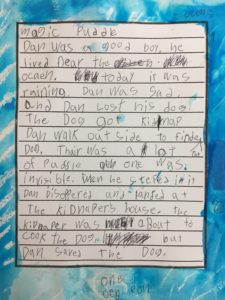 magic Puddle
Dan was a good boy. he
lived near the
ocaen. today it was
raining. Dan was sad.
and Dan Lost his dog!
The Dog got kidnap
Dan walk out side to finde
Dog. Their was a lot
of Puddle one was.
invisible. When he steped in it
Dan disappered and landed at
The kidnaper's house. the
kidnaper was about to
cook the Dog. but
Dan saved the Dog.